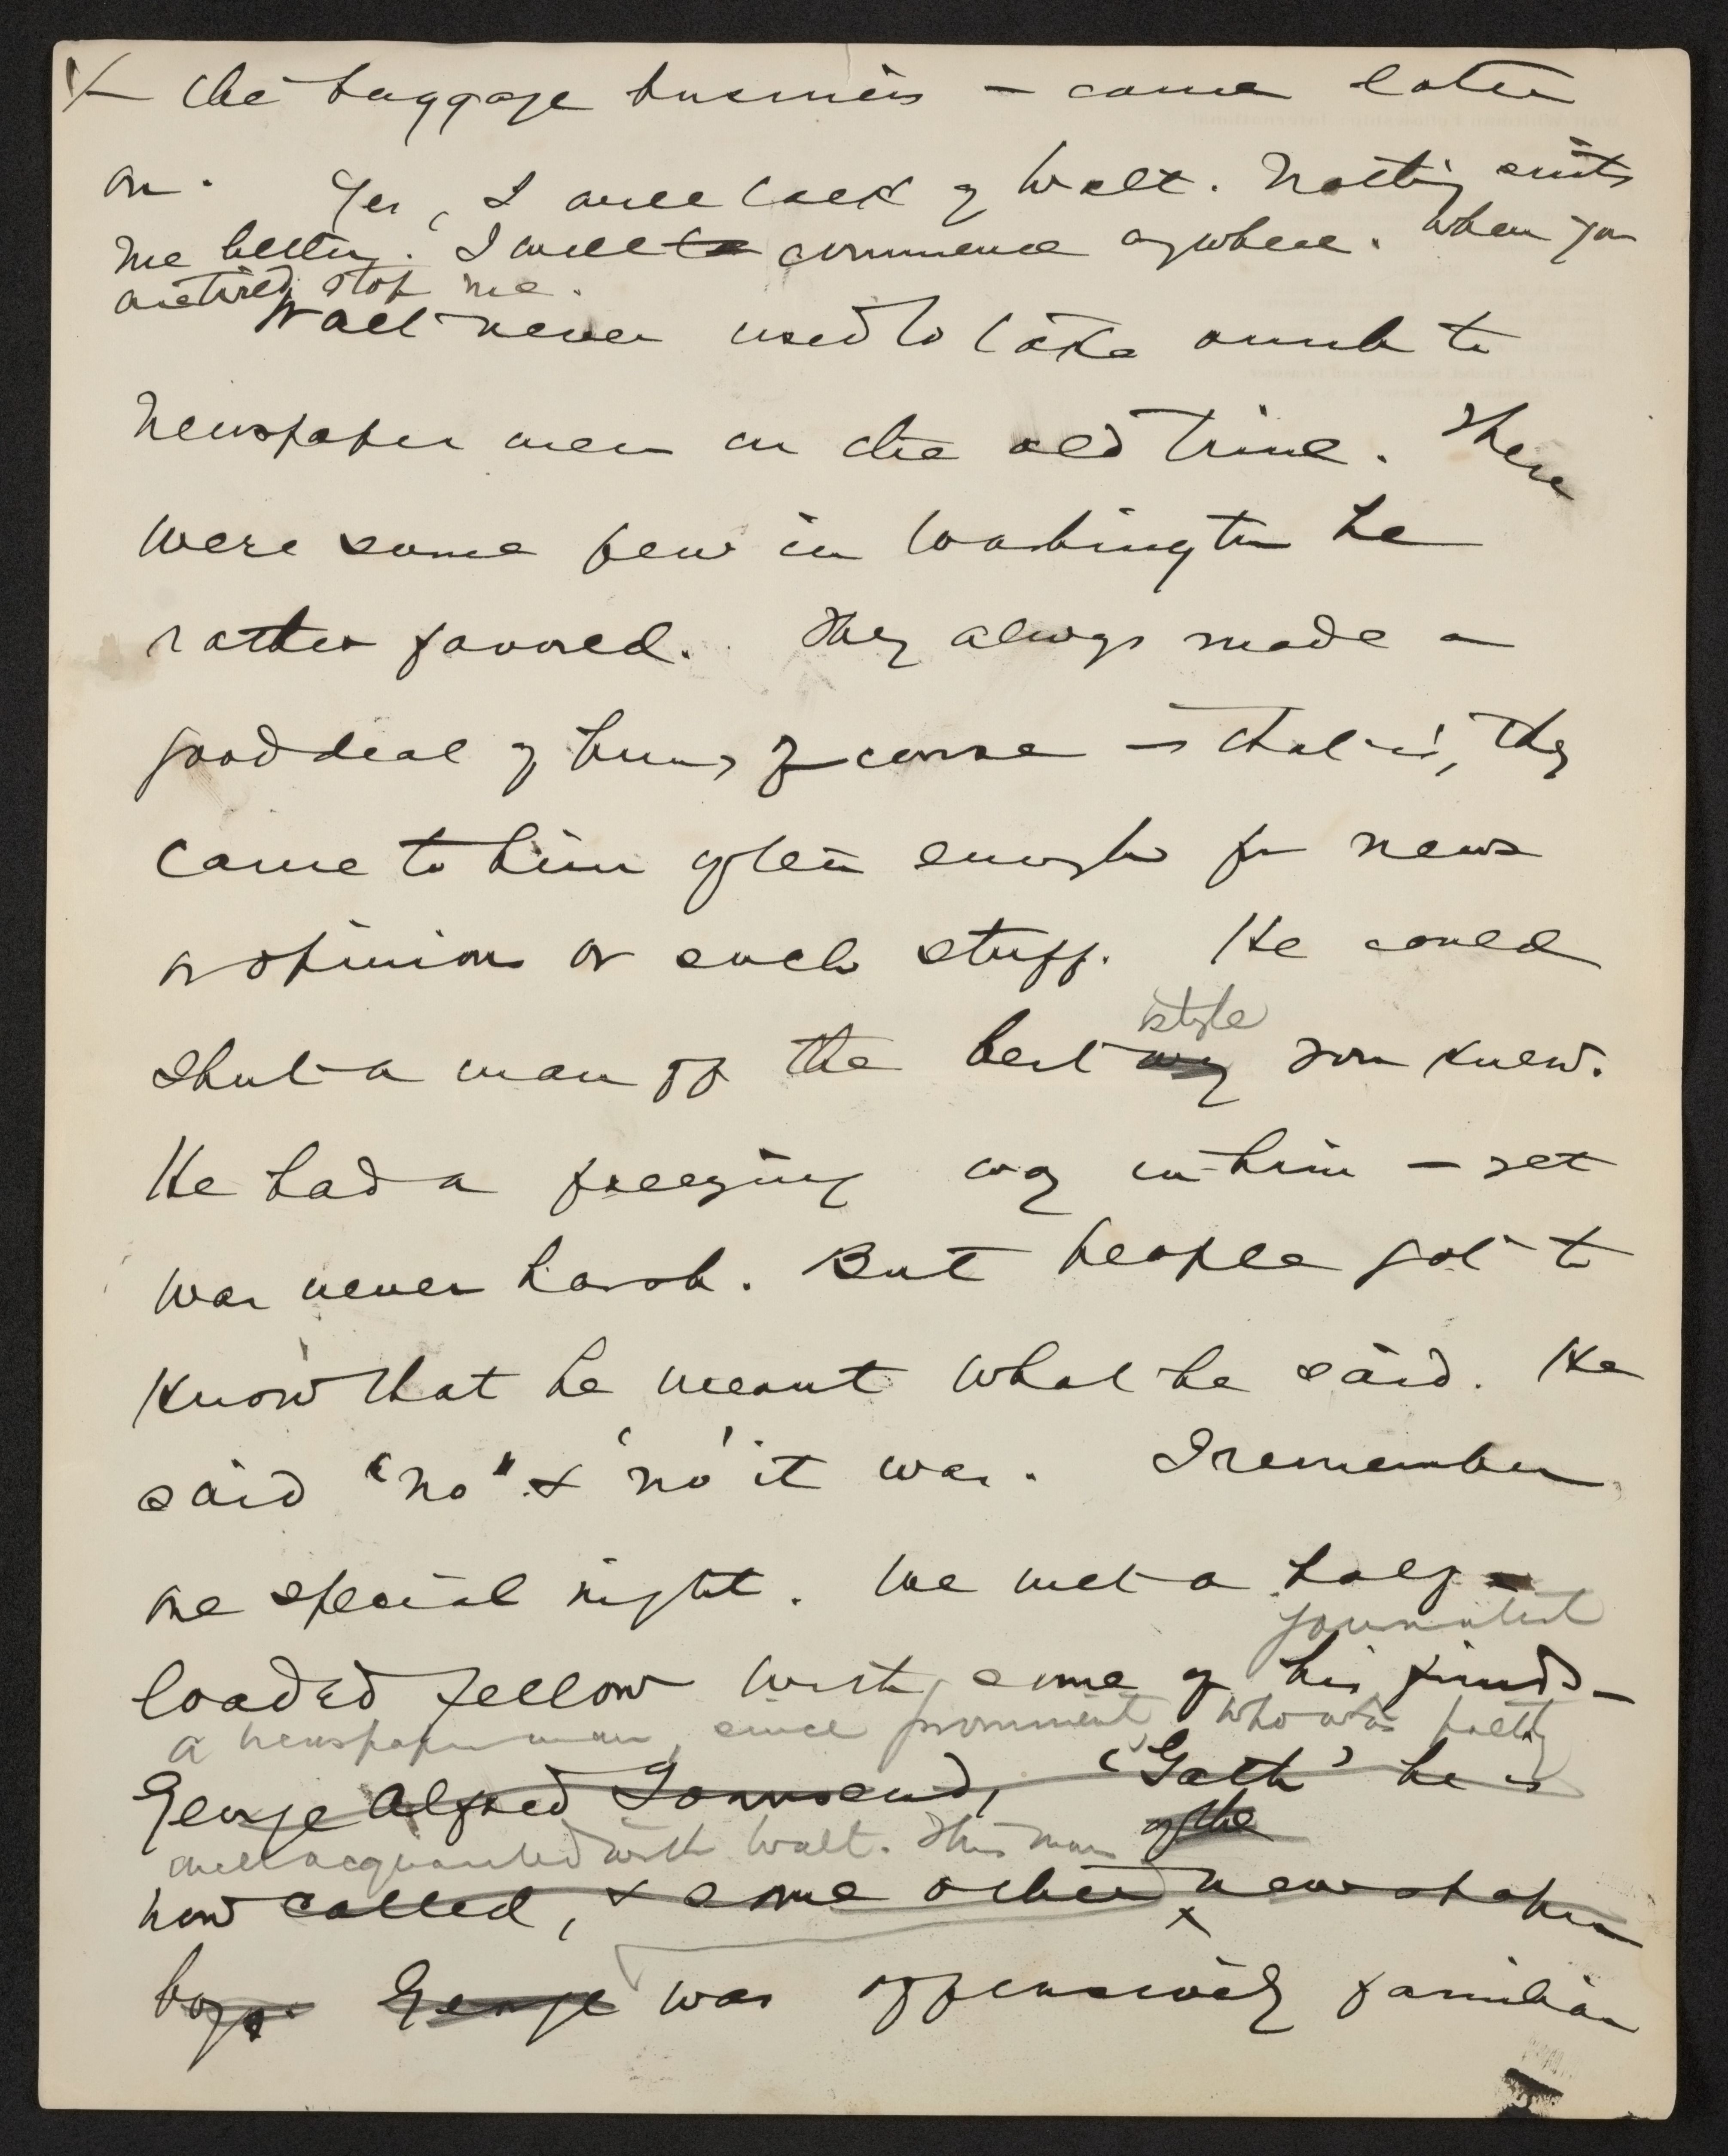 X — the baggage business — came later
on. Yes, I will talk of Walt. Nothing suits
me better. I will to commence anywhere. When you
are tired, stop me.
Walt never used to take much to
newspaper men in the old time. There
were some few in Washington he
rather favored. They always made a
good deal of him, of course — that is, they
came to him often enough for news
or opinions or such stuff. He could
style
shut a man off the best way you knew.
He had a freezing way in him — yet
was never harsh. But people got to
know that he meant what he said. He
said "no" & 'no' it was. I remember
one special night. We met a half-
journalist
loaded fellow with some of his friends —
a newspaper man, since prominent, who was pretty
George Alfred Townsend, 'Gath' he is
of the
well acquainted with Walt. This man
now called, & some other newspaper
x
boys. George was offensively familiar